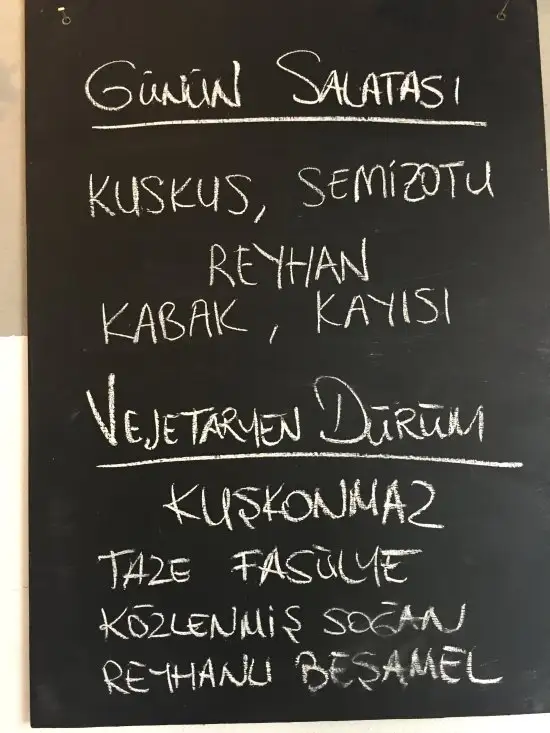 GÜNÜN SALATASI
KUSKUS, SEMİZOTU
REYHAN
KABAK, KAYISI
VEJETARYEN DÜRÜM
KUŞKONMAZ
TAZE FASÜLYE
KÖZLENMİŞ SOĞAN
REYHANLI BEŞAMEL